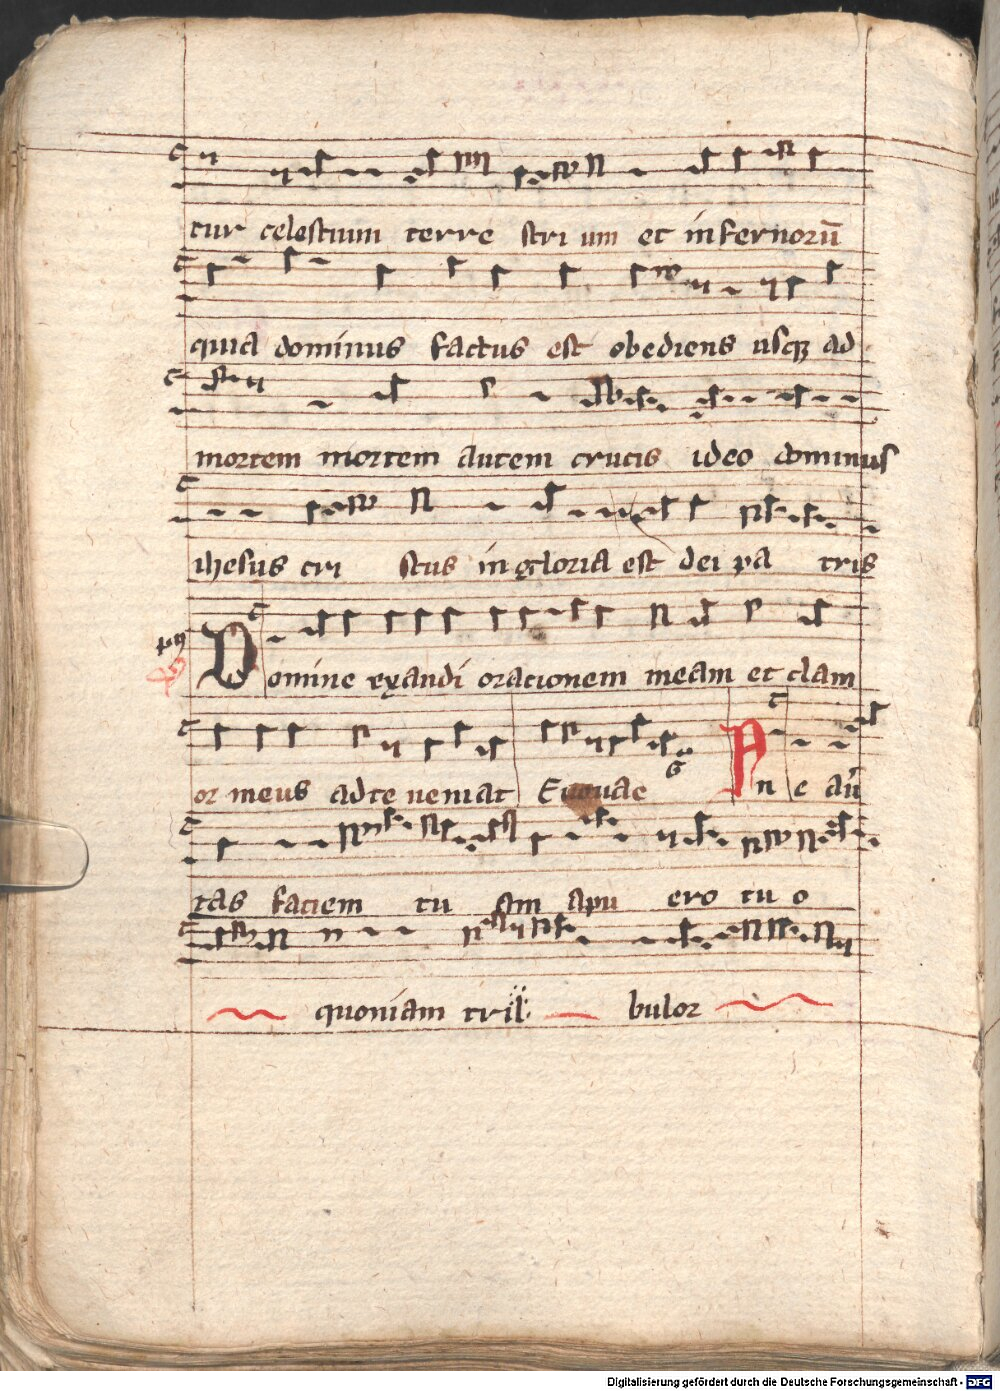 tur celestium terre stri um et infernorū
quia dominus factus est obediens usqꝫ ad
mortem mortem autem crucis ideo dominus
ihesus cri stus in gloria est dei pa tris
ps
Domine exaudi orationem meam et clam
or meus ad te veniat Euouae G Ne au̅
tas faciem tu am a pu ero tu o
quoniam tri bulor
Digitalisierung gefördert durch die Deutsche Forschungsgemeinschaft - DFG